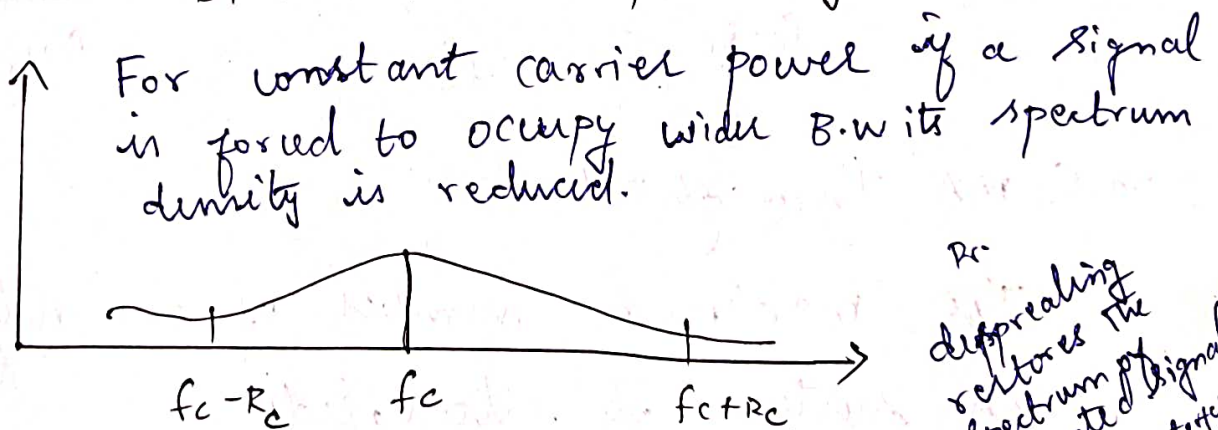 For constant carrier power if a signal
is forced to occupy wider B.W its spectrum
density is reduced.
fc - Rc
fc
fc + Rc
despreading
restores the
spectrum of
signal